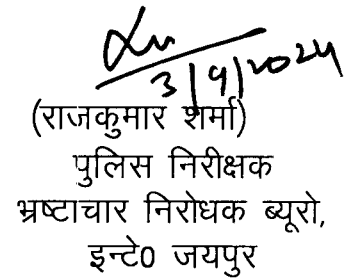 3/9/2024
(राजकुमार शर्मा)
पुलिस निरीक्षक
भ्रष्टाचार निरोधक ब्यूरो,
इन्टे0 जयपुर